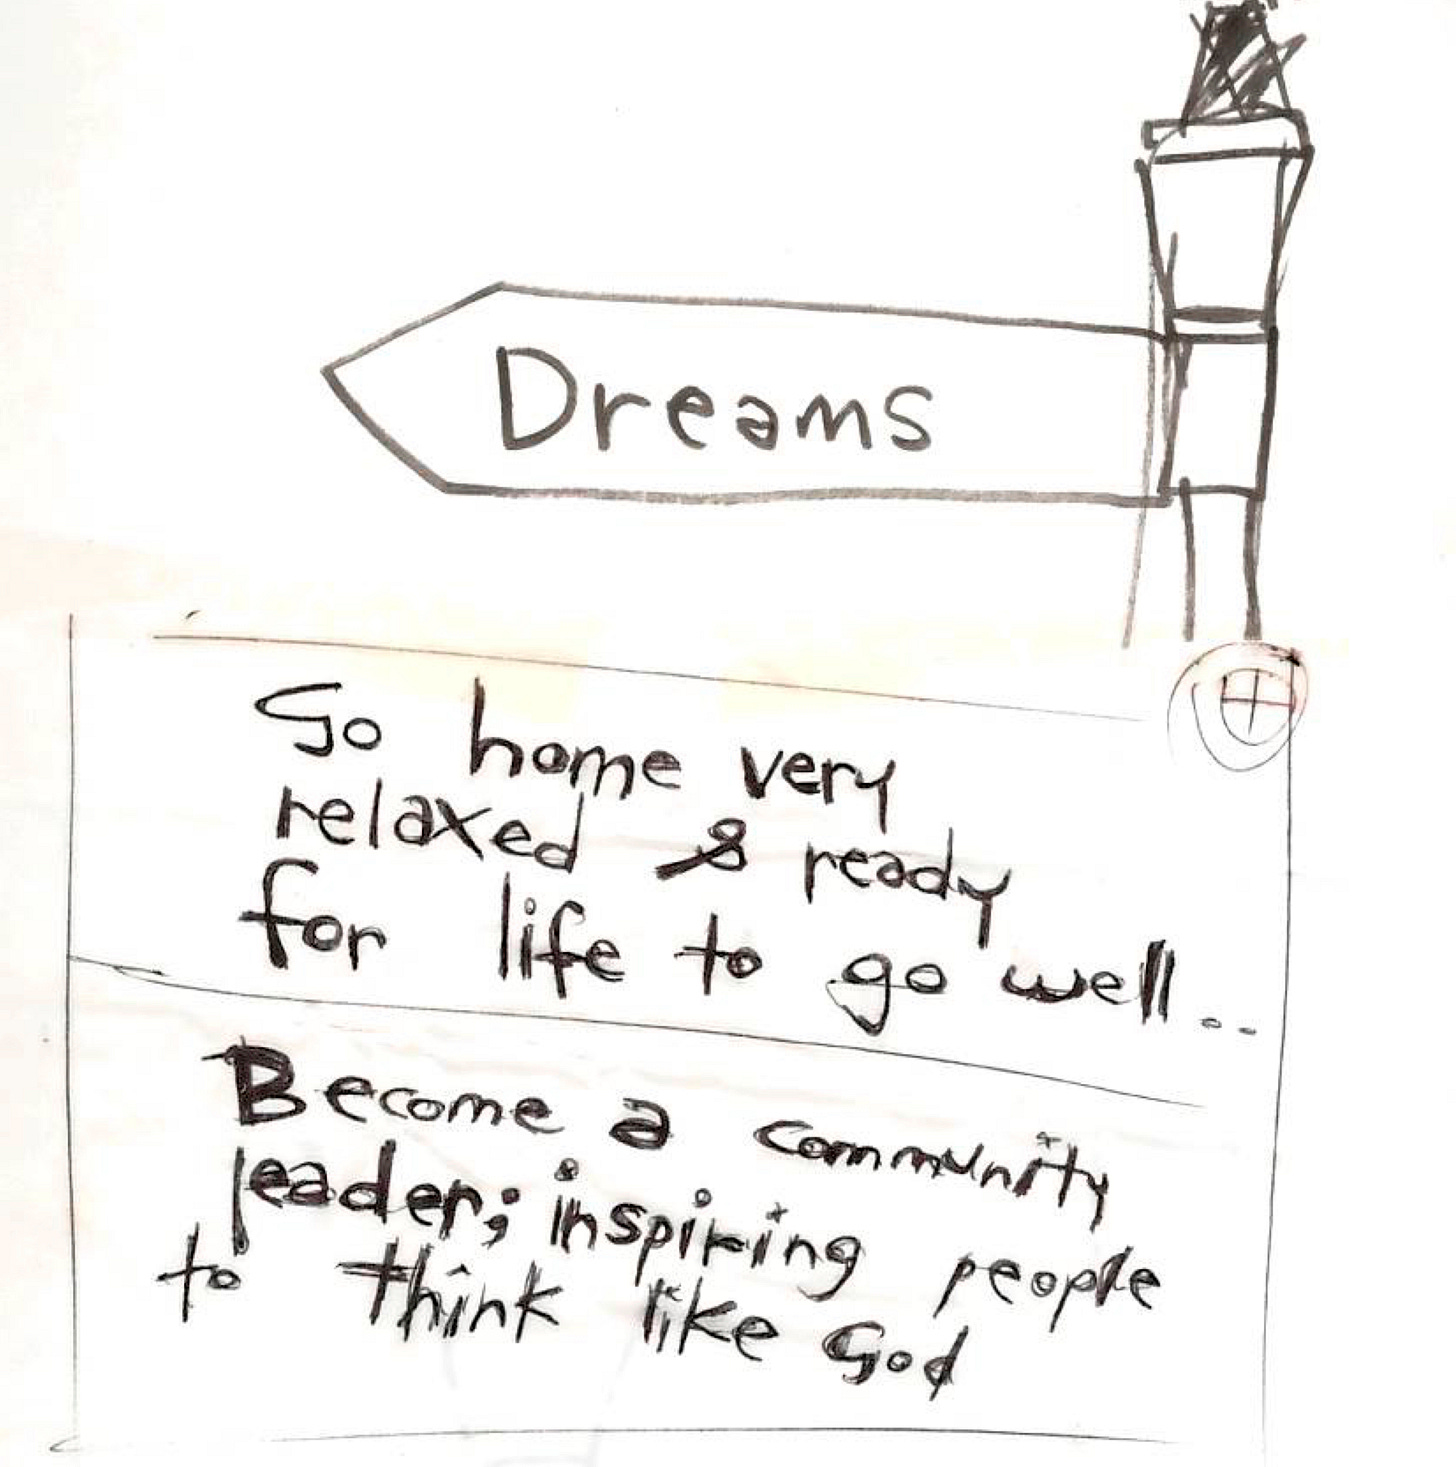 Dreams
Go home very
relaxed & ready
for life to go well..
Become a community
leader; inspiring people
to think like God